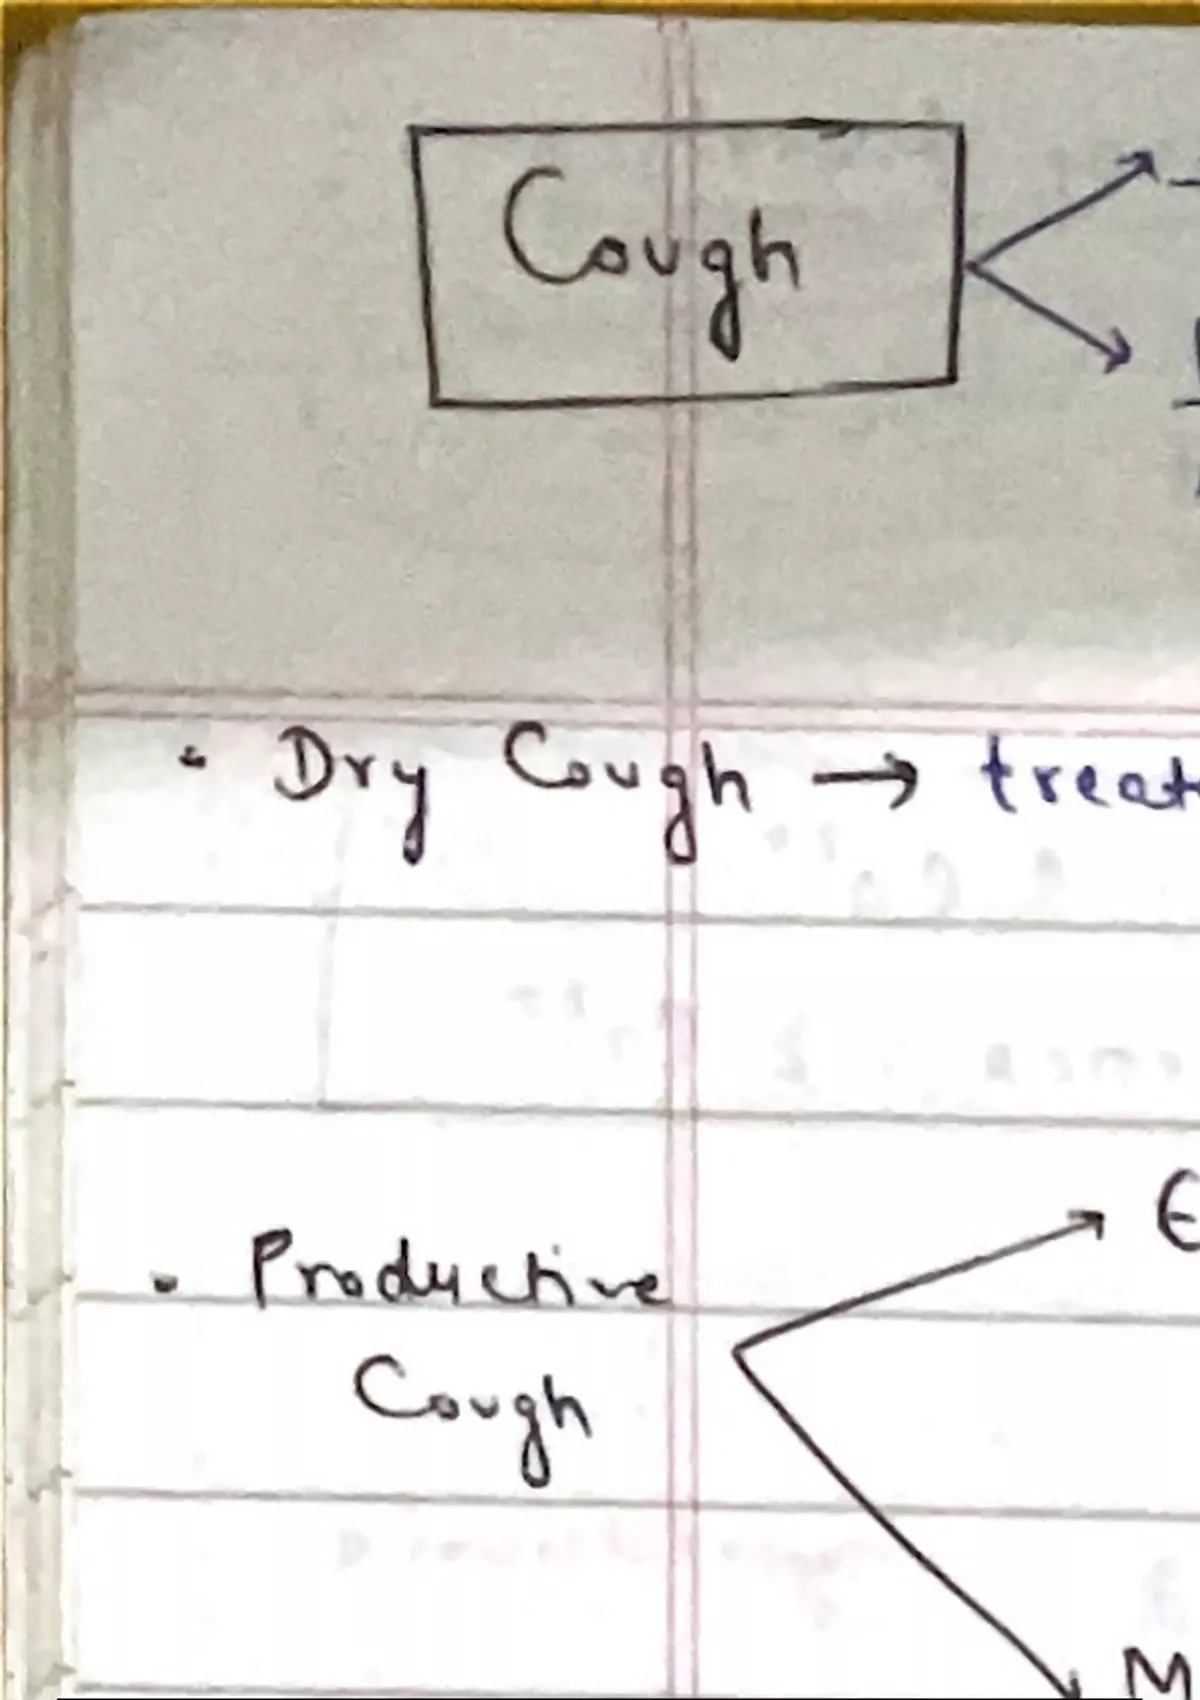 Cough
• Dry Cough → treat
• Productive
Cough